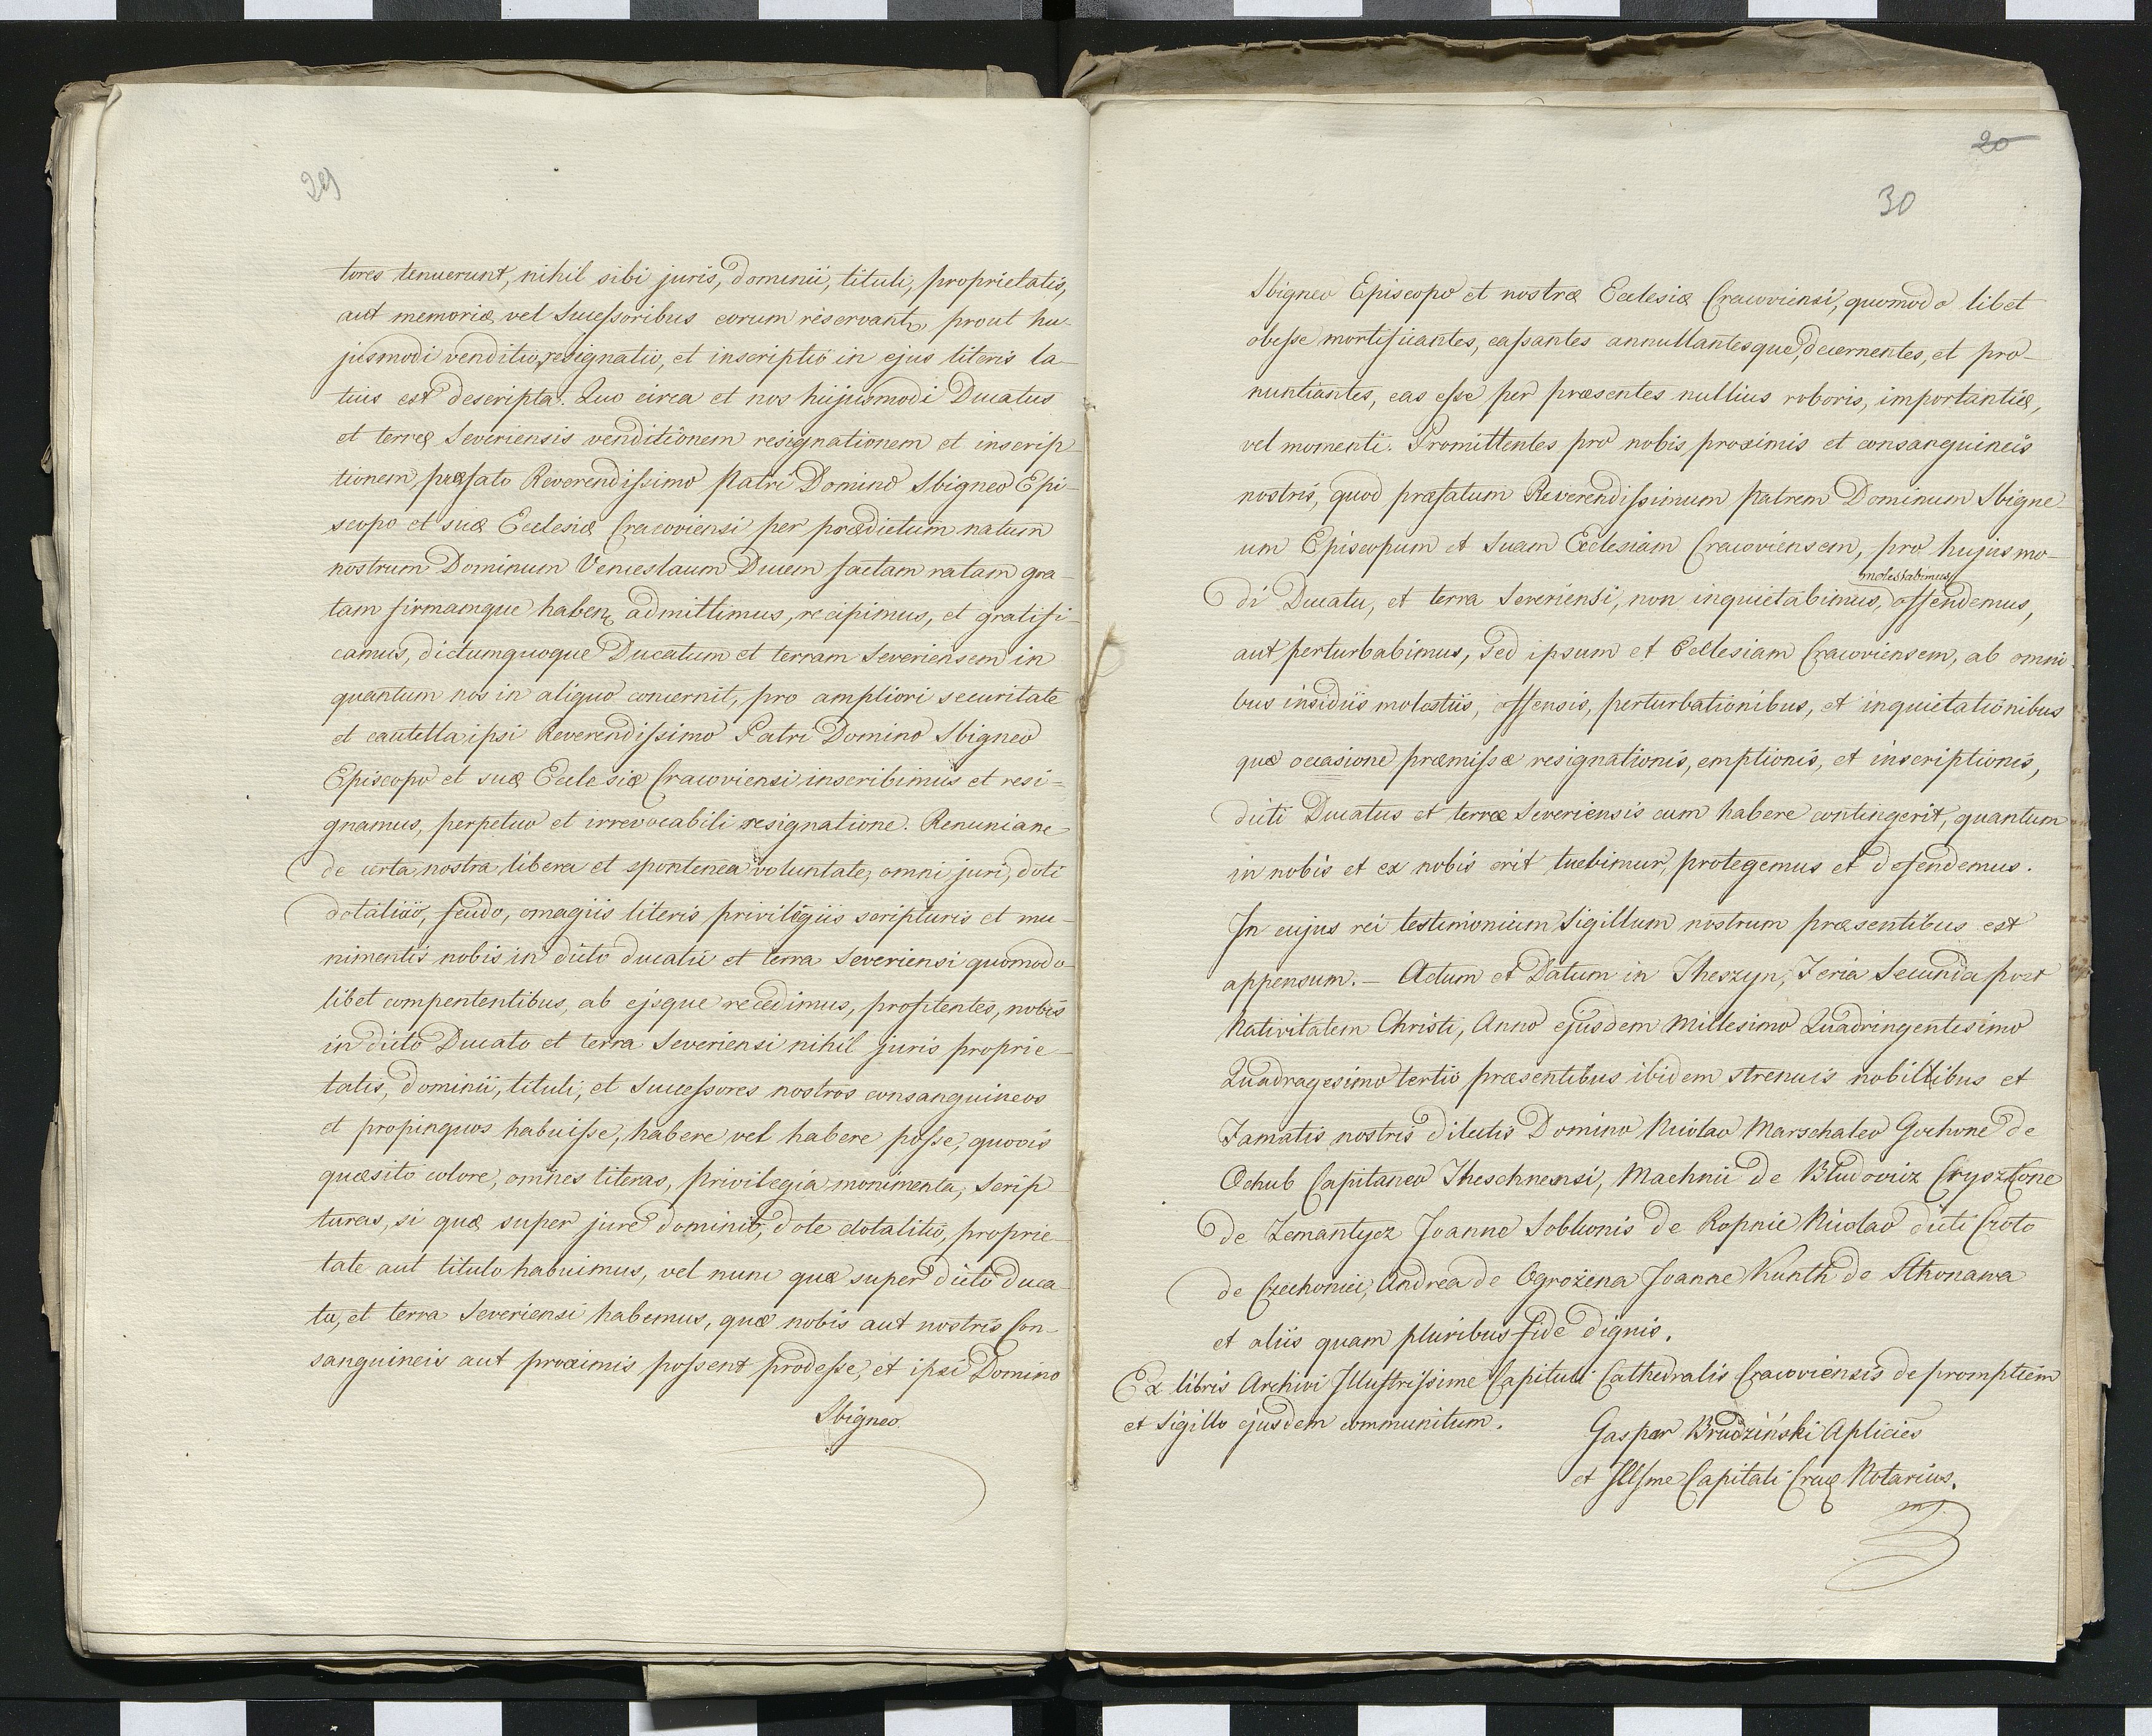 29
tores tenuerunt, nihil sibi juris, dominii, tituli, proprietatis,
aut memoriæ vel Sucessoribus eorum reservant, prout hu-
jusmodi venditio, resignatio, et inscriptio in ejus literis la-
tius est descripta. Quo circa et nos hujusmodi Ducatus
et terræ Severiensis venditionem resignationem et inscrip-
tionem, præfato Reverendissimo Patri Domino Sbigneo Epi-
scopo et suæ Ecclesiæ Cracoviensi per prædictum natum
nostrum Dominum Venceslaum Ducem factam ratam gra-
tam firmamque haben, admittimus, recipimus, et gratifi-
camus, dictumquoque Ducatum et terram Severiensem in
quantum nos in aliquo concernit, pro ampliori securitate
et cautella ipsi Reverendissimo Patri Domino Sbigneo
Episcopo et suæ Ecclesiæ Cracoviensi inscribimus et resi-
gnamus, perpetuo et irrevocabili resignatione. Renunciane
de certa nostra libera et spontenea voluntate, omni juri, doti
dotalitio, feudo, omagiis literis privilegiis scripturis et mu-
nimentis nobis in dicto ducatu et terra Severiensi quomodo-
libet compententibus, ab ejsque recedimus, profitentes, nobis
in dicto Ducato et terra Severiensi nihil juris proprie-
tatis, dominii, tituli, et Successores nostros consanguineos
et propinquos habuisse, habere vel habere posse, quovis
quæsito colore, omnes literas, privilegia monimenta, Scrip-
turas, si quæ super jure dominio, dote dotalitio, proprie-
tate aut titulo habuimus, vel nunc quæ super dicto duca-
tu, et terra Severiensi habemus, quæ nobis aut nostris Con-
sanguineis aut proximis possent prodesse, et ipsi Domino
Sbigneo
20
30
Sbigneo Episcopo et nostræ Ecclesiæ Cracoviensi, quomodo libet
obesse mortificantes, cassantes annullantesque, decernentes, et pro-
nuntiantes, eas esse per præsentes nullius roboris, importantiæ,
vel momenti. Promittentes pro nobis proximis et consanguineis
nostris, quod præfatum Reverendissimum patrem Dominum Sbigne-
um Episcopum et Suam Ecclesiam Cracoviensem, pro hujusmo-
molestabimus
di Ducatu, et terra Severiensi, non inquietabimus, offendemus,
aut perturbabimus, Sed ipsum et Ecclesiam Cracoviensem, ab omni-
bus insidiis molostiis, offensis, perturbationibus, et inquietationibus
quæ occasione præmissæ resignationis, emptionis, et inscriptionis,
dicti Ducatus et terræ Severiensis eum habere contingerit, quantum
in nobis et ex nobis erit tuebimur, protegemus et defendemus.
In cujus rei testimonium Sigillum nostrum præsentibus est
appensum. – Actum et Datum in Theszyn, Feria Secunda post
Nativitatem Christi, Anno ejusdem Millesimo Quadringentesimo
Quadragesimo tertio præsentibus ibidem strenuis nobilibus et
Famatis nostris dilectis Domino Nicolao Marschalco Gochone de
Ochub Capitaneo Theschnensi, Machnii de Bludoviz Crysztone
de Zemantycz Joanne Soblkonis de Kopnie Nicolao dicti Croto
de Czechonici, Andrea de Ogrożena Joanne Kunth de Sthonawa
et aliis quam pluribus fide dignis.
Ex libris Archivi Illustrissime Capituli Cathedralis Cracoviensis depromptum
et Sigillo ejusdem communitum.
Gaspar Brudziński Aplicies
et Illsme Capitali Crac Notarius.
mp